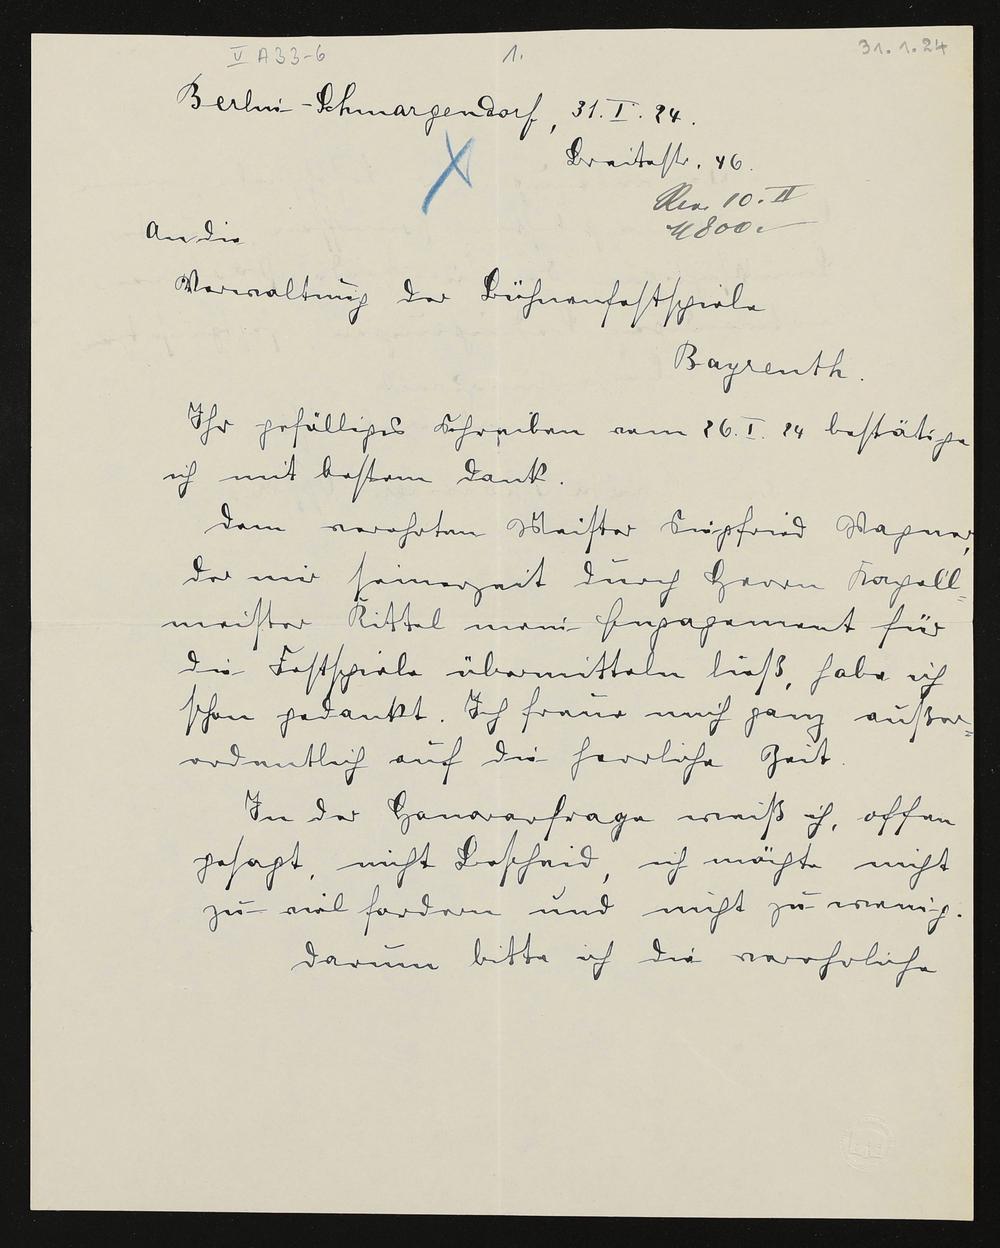 V A 33-6
1.
31.1.24
Berlin-Schmargendorf, 31.I.24.
Breitestr. 46.
10.II
800.-
An die
Verwaltung der Bühnenfestspiele
Bayreuth.
Ihr gefälliges Schreiben vom 26.I.24 bestätige
ich mit bestem Dank.
Dem verehrten Meister Siegfried Wagner,
der mir seinerzeit durch Herrn Kapell=
meister Kittel mein Engagement für
die Festspiele übermitteln ließ, habe ich
schon gedankt. Ich freue mich ganz außer=
ordentlich auf die herrliche Zeit.
In der Honorarfrage weiß ich, offen
gesagt, nicht Bescheid, ich möchte nicht
zu viel fordern und nicht zu wenig.
Darum bitte ich die verehrliche